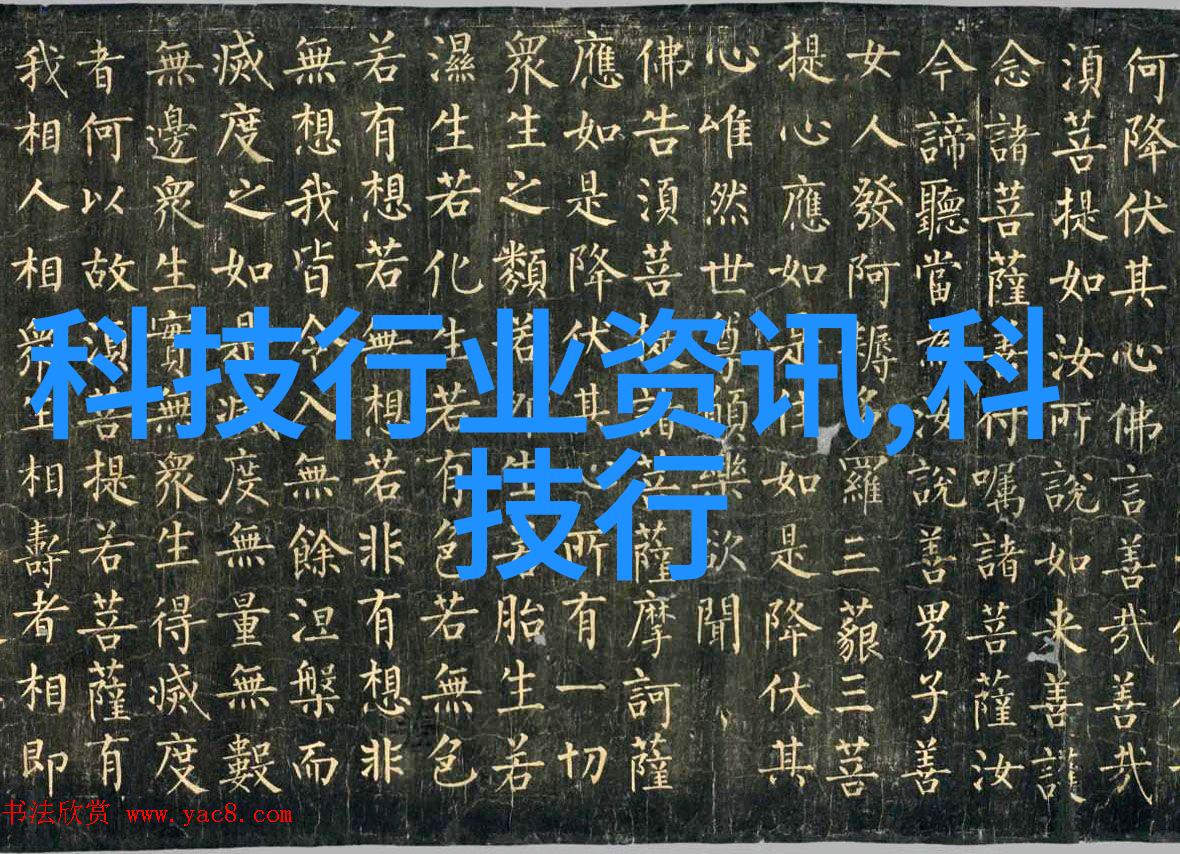 何降伏其心佛言善哉善哉
湏菩提如汝所說如来善護
念諸菩薩善付嘱諸菩薩汝
今諦聽當為汝說善男子善
女人發阿耨多羅三藐三菩
提心應如是住如是降伏其
心唯然世尊願樂欲聞
佛告湏菩提諸菩薩摩訶薩
應如是降伏其心所有一切
衆生之類若卵生若胎生若
濕生若化生若有色若無色
若有想若無想若非有想非
無想我皆令入無餘涅槃而
滅度之如是滅度無量無數
無邊衆生實無衆生得滅度
者何以故湏菩提若菩薩有
我相人相衆生相壽者相即
科技行业资讯,科
技行
书法欣赏 www.yac8.com